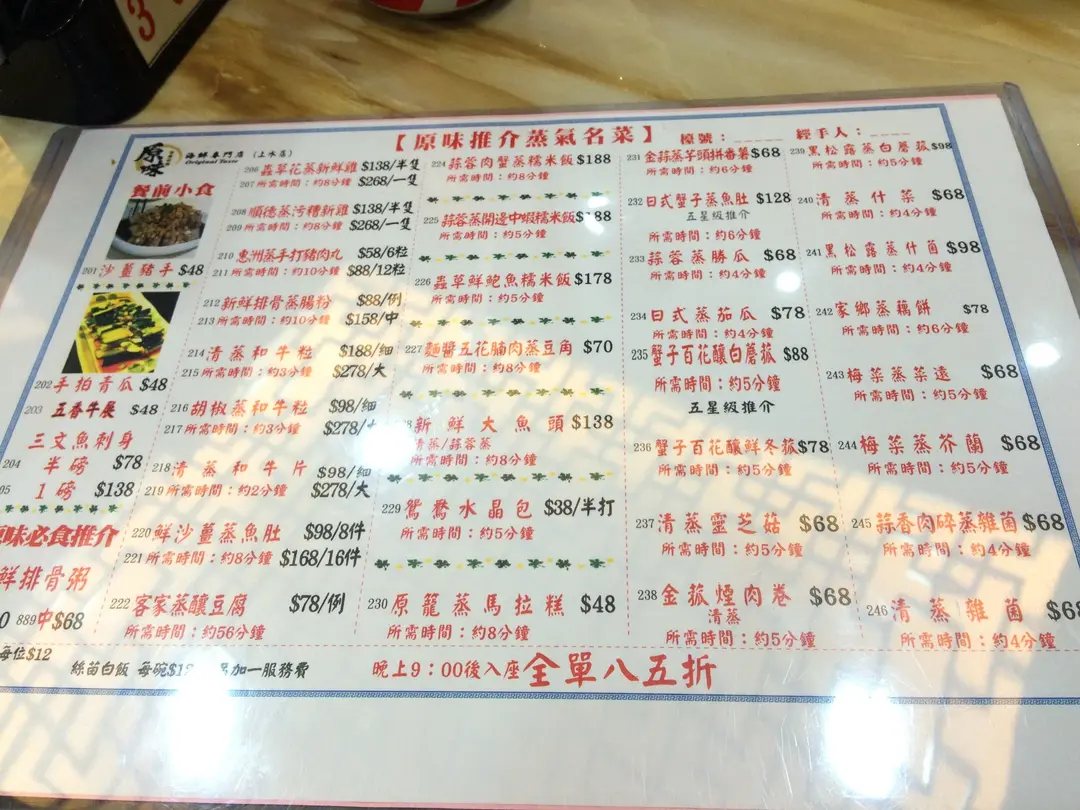 3
原味
海鮮專門店 (上水店)
Original Taste
【原味推介蒸氣名菜】
檯號：
經手人：
餐前小食
201 沙薑豬手 $48
202 手拍青瓜 $48
203 五香牛展 $48
三文魚刺身
204 半磅 $78
05 1磅 $138
原味必食推介
鮮排骨粥
0 889中$68
206 蟲草花蒸新鮮雞 $138/半隻
207 所需時間：約8分鐘 $268/一隻
208 順德蒸污糟新雞 $138/半隻
209 所需時間：約8分鐘 $268/一隻
210 惠洲蒸手打豬肉丸 $58/6粒
211 所需時間：約10分鐘 $88/12粒
212 新鮮排骨蒸腸粉 $88/例
213 所需時間：約10分鐘 $158/中
214 清蒸和牛粒 $188/細
215 所需時間：約3分鐘 $278/大
216 胡椒蒸和牛粒 $98/細
217 所需時間：約3分鐘 $278/大
218 清蒸和牛片 $98/細
219 所需時間：約2分鐘 $278/大
220 鮮沙薑蒸魚肚 $98/8件
221 所需時間：約8分鐘 $168/16件
222 客家蒸釀豆腐 $78/例
所需時間：約56分鐘
224 蒜蓉肉蟹蒸糯米飯 $188
所需時間：約8分鐘
225 蒜蓉蒸開邊中蝦糯米飯 $ 88
所需時間：約5分鐘
226 蟲草鮮鮑魚糯米飯 $178
所需時間：約5分鐘
227 麵醬五花腩肉蒸豆角 $70
所需時間：約8分鐘
新鮮大魚頭 $138
清蒸/蒜蓉蒸
所需時間：約8分鐘
229 鴛鴦水晶包 $38/半打
所需時間：約5分鐘
230 原籠蒸馬拉糕 $48
所需時間：約8分鐘
231 金蒜蒸芋頭拼番薯 $68
所需時間：約6分鐘
232 日式蟹子蒸魚肚 $128
五星級推介
所需時間：約6分鐘
233 蒜蓉蒸勝瓜 $68
所需時間：約4分鐘
234 日式蒸茄瓜 $78
所需時間：約4分鐘
235 蟹子百花釀白蘑菇 $88
所需時間：約5分鐘
五星級推介
236 蟹子百花釀鮮冬菇 $78
所需時間：約5分鐘
237 清蒸靈芝菇 $68
所需時間：約5分鐘
238 金菇煙肉卷 $68
清蒸
所需時間：約5分鐘
239 黑松露蒸白蘑菇 $98
所需時間：約5分鐘
240 清蒸什菜 $68
所需時間：約4分鐘
241 黑松露蒸什菌 $98
所需時間：約4分鐘
242 家鄉蒸藕餅 $78
所需時間：約6分鐘
243 梅菜蒸菜遠 $68
所需時間：約5分鐘
244 梅菜蒸芥蘭 $68
所需時間：約5分鐘
245 蒜香肉碎蒸雜菌 $68
所需時間：約4分鐘
246 清蒸雜菌 $68
所需時間：約4分鐘
每位$12
絲苗白飯 每碗$1
加一服務費
晚上9：00後入座全單八五折